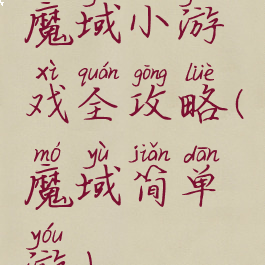 魔域小游
xì quán gōng lüè
戏全攻略(
mó yù jiǎn dān
魔域简单
yóu
游)